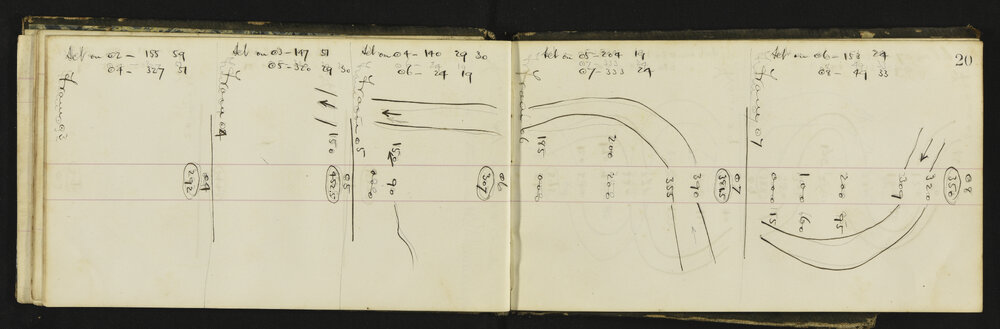 Set on 02 - 155 59
04 - 327 51
From 03
04
292
Set on 03 - 147 51
05 - 320 29 30
From 04
150
05
Set on 04 - 140 29 30
06 - 24 19
From 05
150 90
000
06
307
Set on 05 - 204 19
07 - 333 24
From 06
185
000
200
200
355
390
07
Set on 06 - 153 24
08 - 49 33
20
From 07
000 15
100 60
200 95
309
320
350
08